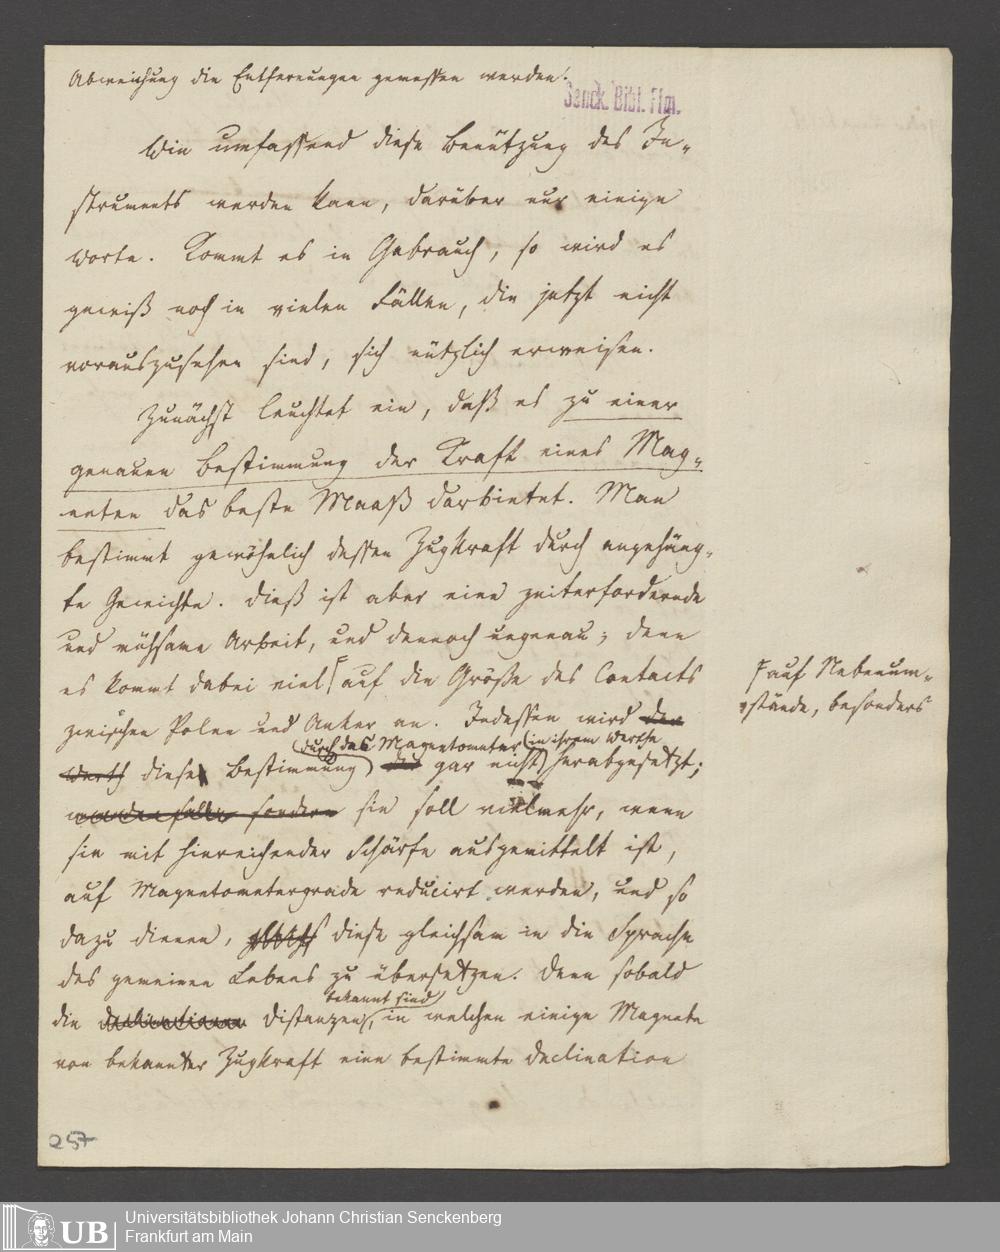 Abweichung die Entfernungen gemessen werden.
Senck. Bibl. Ffm.
Wie umfassend diese Benützung des In-
struments werden kann, darüber nur einige
Worte. Kommt es in Gebrauch, so wird es
gewiß noch in vielen Fällen, die jetzt nicht
vorauszusehen sind, sich nützlich erweisen.
Zunächst leuchtet ein, daß es zu einer
genauen Bestimmung der Kraft eines Mag-
neten das beste Maaß darbietet. Man
bestimmt gewöhnlich dessen Zugkraft durch angehäng-
te Gewichte. Dieß ist aber eine zeiterfordernde
und mühsame Arbeit, und dennoch ungenau; denn
es kommt dabei viel auf die Größe des Contacts
auf Nebenum-
stände, besonders
zwischen Polen und Anker an. Indessen wird der
durch das Magnetometer in ihrem Werthe
Werth diese Bestimmung gar nicht herabgesetzt;
werden sondern sie soll vielmehr, wenn
sie mit hinreichender Schärfe ausgemittelt ist,
auf Magnetometergrade reducirt werden, und so
dazu dienen, diese gleichsam in die Sprache
des gemeinen Lebens zu übersetzen. Denn sobald
bekannt sind
die Declinationen Distanzen, in welchen einige Magnete
von bekannter Zugkraft eine bestimmte Declination
257
UB
Universitätsbibliothek Johann Christian Senckenberg
Frankfurt am Main